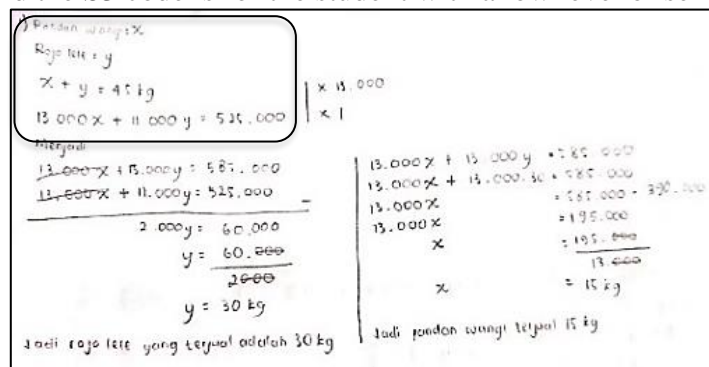 1) Pandan wangi = x
Rojo lele = y
x + y = 45 kg | x 13.000
13.000x + 11.000y = 525.000 | x 1
Menjadi
13.000x + 13.000y = 585.000
13.000x + 11.000y = 525.000 -
2.000y = 60.000
y = 60.000
2000
y = 30 kg
Jadi rojo lele yang terjual adalah 30 kg
13.000x + 13.000y = 585.000
13.000x + 13.000.30 = 585.000
13.000x = 585.000 - 390.000
13.000x = 195.000
x = 195.000
13.000
x = 15 kg
Jadi pandan wangi terjual 15 kg